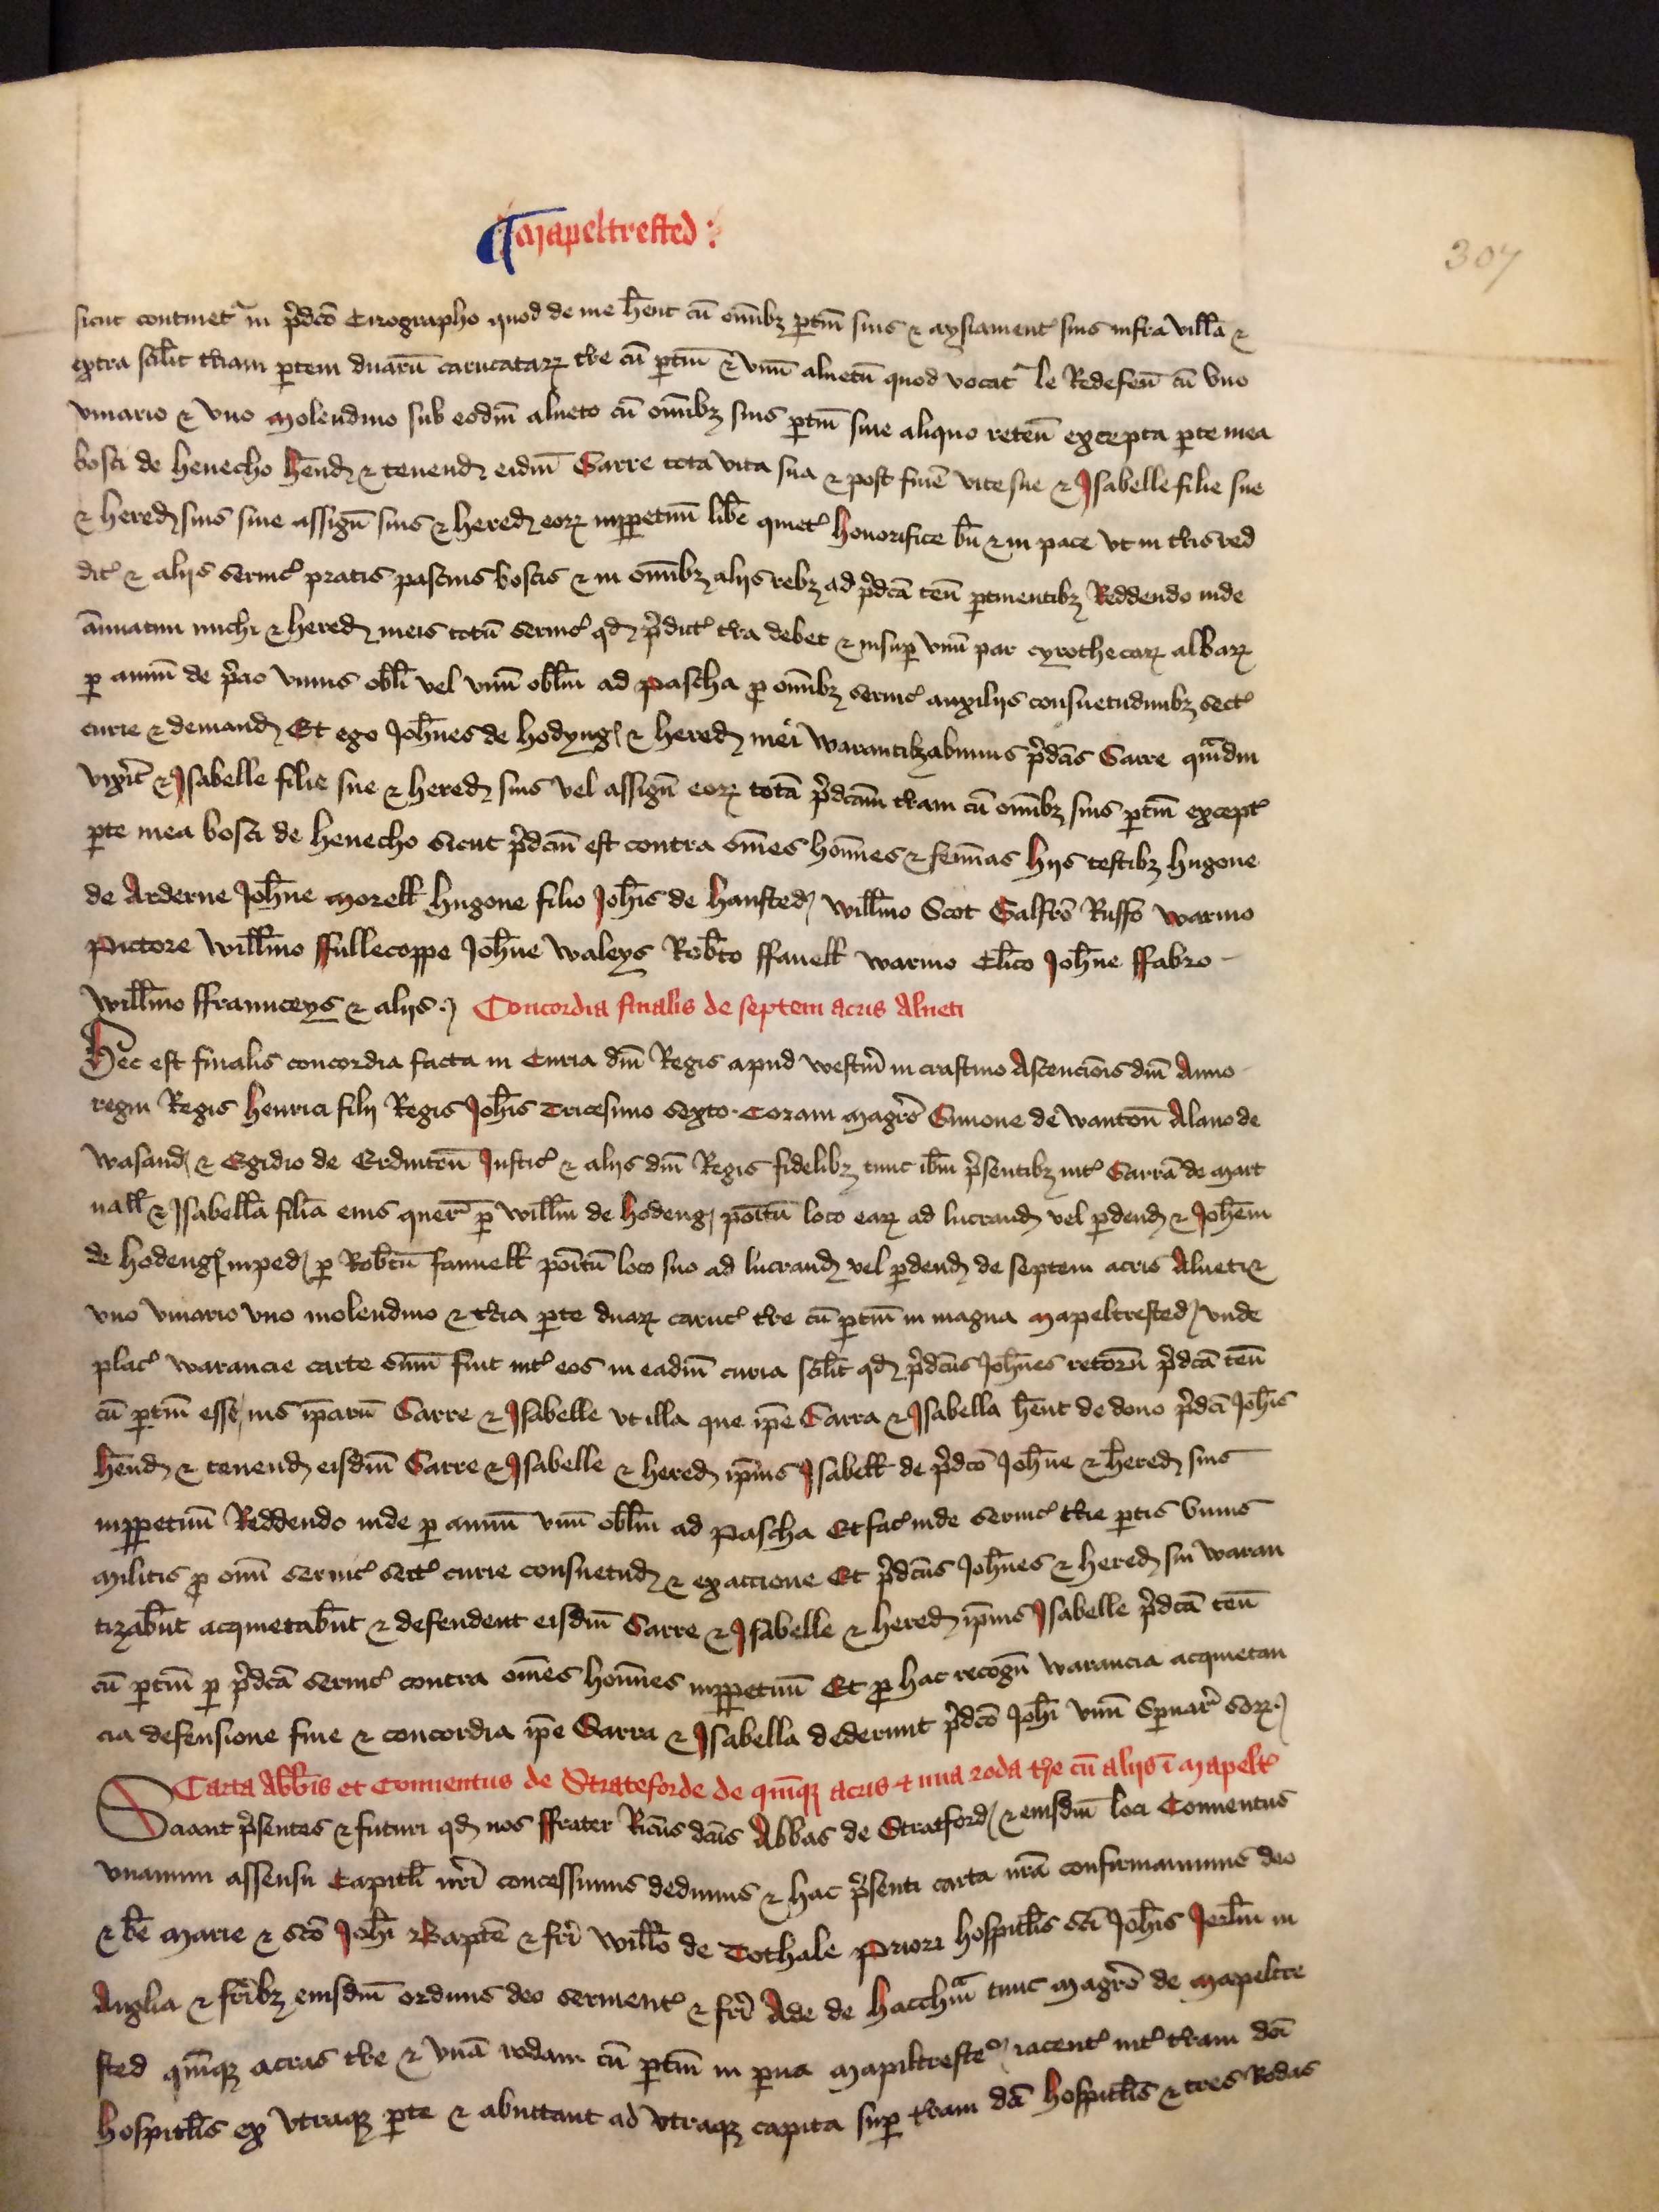 ¶ Mapeltrested :
307
sicut continet᷑ in p̃dc̃o Cirographo quod de me h̃ent cũ om̃ibꝫ ꝑtiñ suis ⁊ aysiament᷑ suis infra villã ⁊
extra scil̃t t̃ciam ꝑtem duarũ carucataꝝ t̃re cũ ꝑtiñ ⁊ vnũ alnetũ quod vocat᷑ le Redefeñ cũ vno
viuario ⁊ vno Molendino sub eodm̃ alneto cũ om̃ibꝫ suis ꝑtiñ sine aliquo reteñ excepta ꝑte mea
bosci de henecho h̃end̛ ⁊ tenend̛ eidm̃ Sarre tota vita sua ⁊ post finẽ vite sue ⁊ Isabelle filie sue
⁊ hered̛ suis siue assigñ suis ⁊ hered̛ eoꝝ inꝑpetuũ lib̃e quiet᷑ honorifice bñ ⁊ in pace vt in t̃ris red
dit᷑ ⁊ alijs seruic᷑ pratis pascuis boscis ⁊ in om̃ibꝫ alijs rebꝫ ad p̃dc̃a teñ ꝑtinentibꝫ Reddendo inde
añuatim michi ⁊ hered̛ meis totũ seruic᷑ qd̛ p̃dict᷑ t̃ra debet ⁊ insuꝑ vnũ par cyrothecaꝝ albaꝝ
ꝑ annũ de p̃cio vnius obl̃i vel vnũ obl̃m ad Pascha ꝓ om̃ibꝫ seruic᷑ auxilijs consuetudinibꝫ sect᷑
curie ⁊ demand̛ Et ego Joh̃nes de Hodyng̛ ⁊ hered̛ mei warantizabimus p̃dc̃is Sarre qãdiu
vixit̃ ⁊ Isabelle filie sue ⁊ hered̛ suis vel assigñ eoꝝ totã p̃dc̃am t̃ram cũ om̃ibꝫ suis ꝑtiñ except᷑
ꝑte mea bosci de henecho sicut p̃dc̃m̃ est contra om̃es hoĩnes ⁊ femĩas hijs testibꝫ Hugone
de Arderne Joh̃ne Morell̃ Hugone filio Joh̃is de hansted̛ Will̃mo Scot Galfr̃o Ruffo Warino
Pictore Will̃mo ffullecoppe Joh̃ne Waleys Rob̃to ffanell̃ Warino Cl̃ico Joh̃ne ffabro
Will̃mo ffraunceys ⁊ alijs. Concordia finalis de septem acris Alneti
Hec est finalis concordia facta in Curia dñi Regis apud westm̃ in crastino Ascencõis dñi Anno
regni Regis Henrici filij Regis Joh̃is Tricesimo sexto. Coram Magr̃o Simone de Wantoñ Alano de
Wasand̛ ⁊ Egidio de Erdintoñ Justic᷑ ⁊ alijs dñi Regis fidelibꝫ tunc ib̃m p̃sentibꝫ int᷑ Sarrã de Mart
nall̃ ⁊ Isabellã filiã eius quer᷑ ꝑ Will̃m de Hodeng̛ põitũ loco eaꝝ ad lucrand̛ vel ꝑdend̛ ⁊ Joh̃em
de Hodeng̛ imped̛ ꝑ Rob̃tũ fanuell̃ põitũ loco suo ad lucrand̛ vel ꝑdend̛ de septem acris Alneti ⁊
vno viuario vno molendino ⁊ t̃cia ꝑte duaꝝ caruc᷑ t̃re cũ ꝑtiñ in magna Mapeltrested̛ vnde
plac᷑ warancie carte sum̃ fuit int᷑ eos in eadm̃ curia scil̃t qd̛ p̃dc̃us Joh̃nes recoñ p̃dc̃a teñ
cũ ꝑtiñ esse ius ip̃arũ Sarre ⁊ Isabelle vt illa que ip̃e Sarra ⁊ Isabella h̃ent de dono p̃dc̃i Joh̃is
h̃end̛ ⁊ tenend̛ eisdm̃ Sarre ⁊ Isabelle ⁊ hered̛ ip̃ius Isabell̃ de p̃dc̃o Joh̃ne ⁊ hered̛ suis
inꝑpetuũ Reddendo inde ꝑ annũ vnũ obl̃m ad Pascha Et fac᷑ inde seruic᷑ t̃cie ꝑtis vnius
Militis ꝓ om̃i seruic᷑ sect᷑ curie consuetud̛ ⁊ exaccione Et p̃dc̃us Joh̃nes ⁊ hered̛ sui waran
tizab̃nt acquietab̃nt ⁊ defendent eisdm̃ Sarre ⁊ Isabelle ⁊ hered̛ ip̃ius Isabelle p̃dc̃a teñ
cũ ꝑtiñ ꝑ p̃dc̃a seruic᷑ contra om̃es hoĩnes inꝑpetuũ Et ꝓ hac recogñ warancia acquietan
cia defensione fine ⁊ concordia ip̃e Sarra ⁊ Isabella dederunt p̃dc̃o Joh̃i vnũ Spuar̃ Soꝝ
Carta Abb̃is et Conuentus de Strateforde de quinqꝫ acris ⁊ una roda t̃re cũ alijs ĩ Mapelt᷑
Sciant p̃sentes ⁊ futuri qd̛ nos ffrater Ric̃us dc̃us Abbas de Stratford̛ ⁊ eiusdm̃ loci Conuentus
vnanimi assensu Capitl̃i nr̃i concessimus dedimus ⁊ hac p̃senti carta nr̃a confirmauimus deo
⁊ b̃e Marie ⁊ sc̃o Joh̃i Bapt̃e ⁊ fr̃i Will̃o de Tothale Priori hospital̃is sc̃i Joh̃is Jerl̃m in
Anglia ⁊ fr̃ibꝫ eiusdm̃ ordinis deo seruient᷑ ⁊ fr̃i Ade de Hacchm̃ tunc Magr̃o de Mapeltre
sted quinqꝫ acras t̃re ⁊ vnã rodam cũ ꝑtiñ in ꝑua Mapiltreste᷑ iacent᷑ int᷑ t̃ram dc̃i
hospital̃is ex vtraqꝫ ꝑte ⁊ abuttant ad vtraqꝫ capita suꝑ t̃ram dc̃i hospital̃is ⁊ tres Rodas